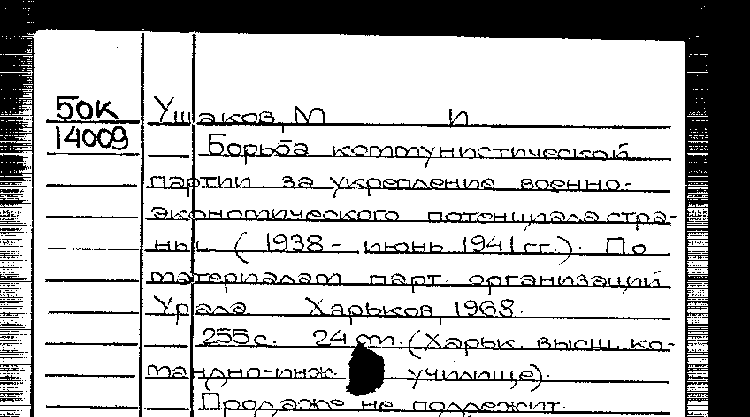 50К Ушаков, М И
14009 Борьба коммунистической
партии за укрепление военно-
экономического потенциала стра-
ны. (1938 - июнь 1941 гг.). По
материалам парт. организаций
Урала Харьков, 1968.
255 с. 24 см. (Харьк. высш. ко-
мандно-инж училище).
Продаже не подлежит.